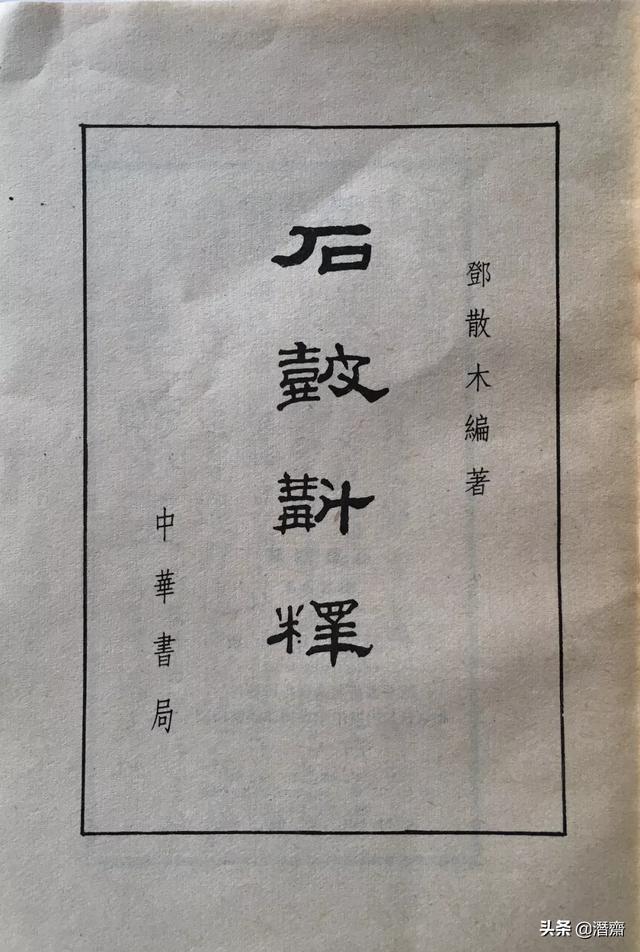 鄧散木編著
石鼓斠釋
中華書局
头条 @潛齋